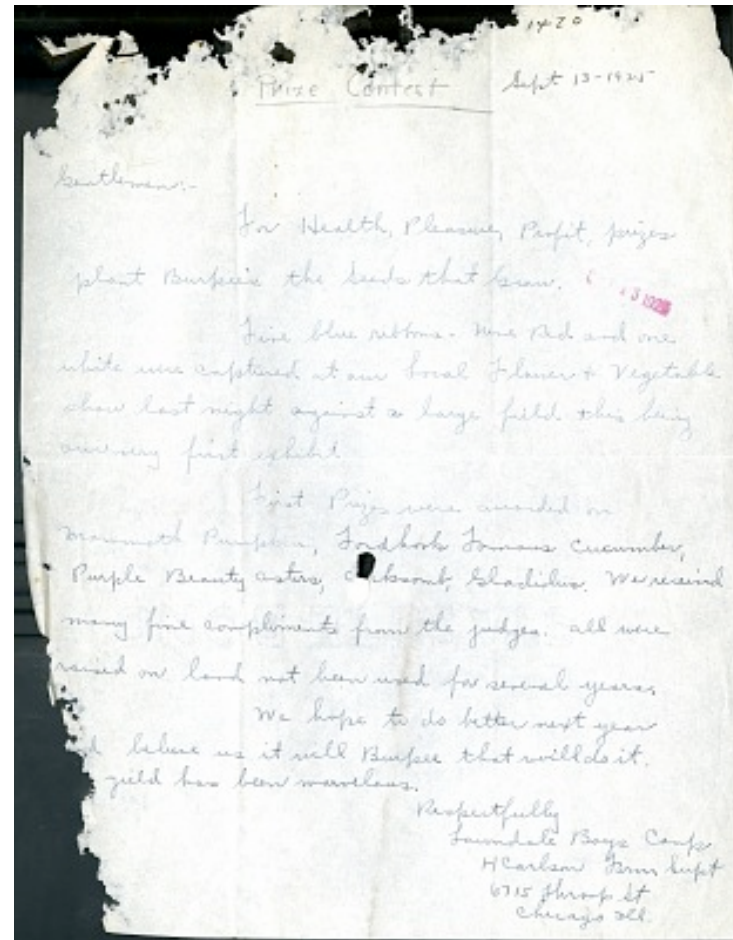 1420
Prize Contest Sept 13-1925
Gentlemen:-
For Health, Pleasure, Profit, prizes
plant Burpee's the seeds that grow.
Five blue ribbons - Nine Red and one
white were captured at our Local Flower + Vegetable
show last night against a large field this being
our very first exhibit
First Prizes were awarded on
Mammoth Pumpkin, Fordhook Famous Cucumber,
Purple Beauty asters, Gladiolus. We received
many fine compliments from the judges. all were
raised on land not been used for several years.
We hope to do better next year
believe us it will Burpee that will do it.
yield has been marvelous.
Respectfully
Lawndale Boys Camp
H Carlson Farm Supt
6715 Throop St
Chicago Ill.